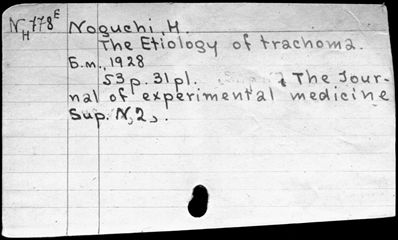 N 778 E
H
Noguchi, H.
The Etiology of trachoma.
Б.м., 1928
53 p. 31 pl. The Jour-
nal of experimental medicine
Sup. N, 2,.